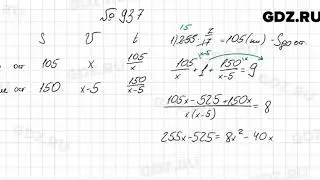 GDZ.RU
№ 937
S V t
от 105 x 105/x
от 150 x-5 150/(x-5)
15
1) 255 · 7/17 = 105 (км) - Sдо ост.
105/x + 1 + 150/(x-5) = 9
(105x - 525 + 150x)/(x(x-5)) = 8
255x - 525 = 8x² - 40x